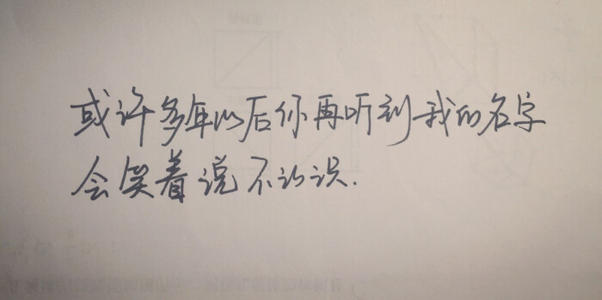 或许多年以后你再听到我的名字
会笑着说不认识.